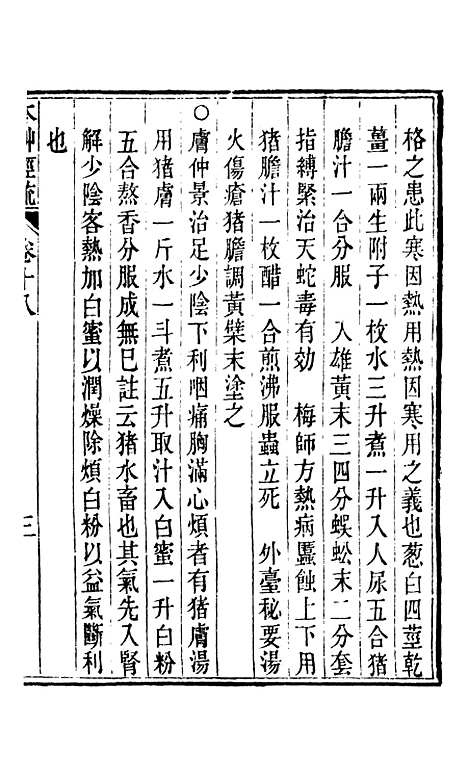 格之患此寒因熱用熱因寒用之義也葱白四莖乾
薑一兩生附子一枚水三升煮一升入人尿五合猪
膽汁一合分服　入雄黃末三四分蜈蚣末二分套
指縛緊治天蛇毒有効　梅師方熱病䘌蝕上下用
猪膽汁一枚醋一合煎沸服蟲立死　外臺秘要湯
火傷瘡猪膽調黃蘗末塗之
○膚仲景治足少陰下利咽痛胸滿心煩者有猪膚湯
用猪膚一斤水一斗煮五升取汁入白蜜一升白粉
五合熬香分服成無巳註云猪水畜也其氣先入腎
解少陰客熱加白蜜以潤燥除煩白粉以益氣斷利
也
本艸經疏　卷十八　三